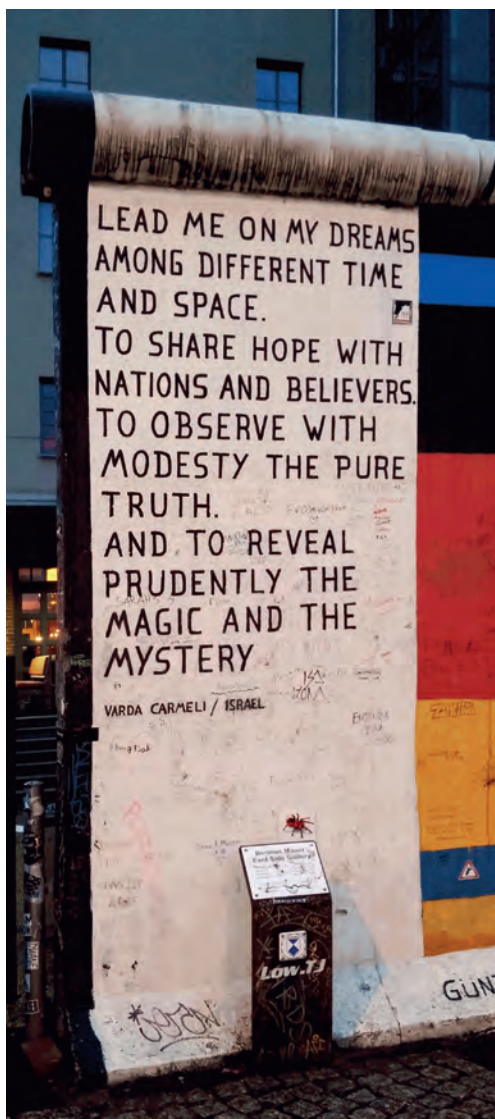 LEAD ME ON MY DREAMS
AMONG DIFFERENT TIME
AND SPACE.
TO SHARE HOPE WITH
NATIONS AND BELIEVERS.
TO OBSERVE WITH
MODESTY THE PURE
TRUTH.
AND TO REVEAL
PRUDENTLY THE
MAGIC AND THE
MYSTERY
VARDA CARMELI / ISRAEL
Berliner Mauer
East Side Gallery
Low.TJ
GÜNT